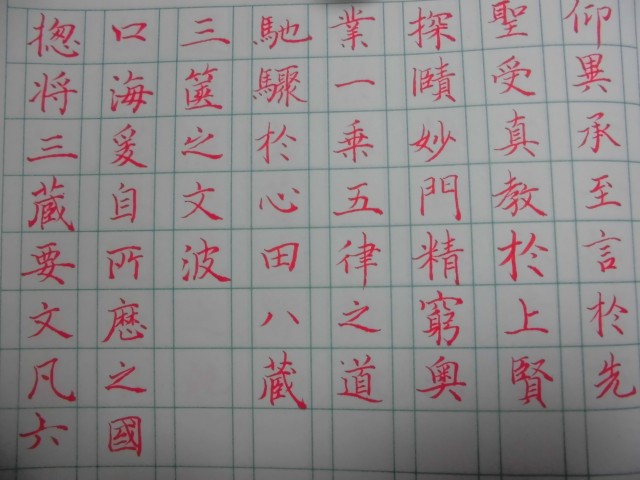 仰異承至言於先
聖受真教於上賢
探賾妙門精窮奧
業一乗五律之道
馳驟於心田八藏
三篋之文波
口海爰自所歷之國
揔将三藏要文凡六